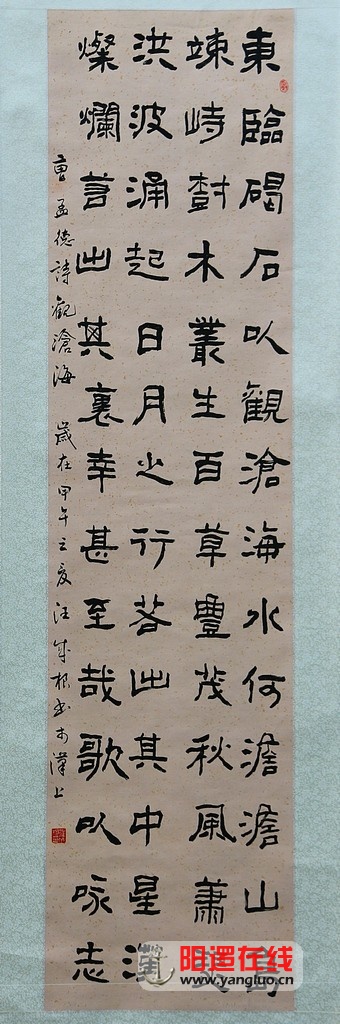 東臨碣石以觀滄海水何澹澹山島
竦峙樹木叢生百草豐茂秋風蕭瑟
洪波涌起日月之行若出其中星漢
燦爛若出其裏幸甚至哉歌以咏志
曹孟德詩觀滄海 歲在甲午之夏汪根书於漢上
阳逻在线
www.yangluo.cn